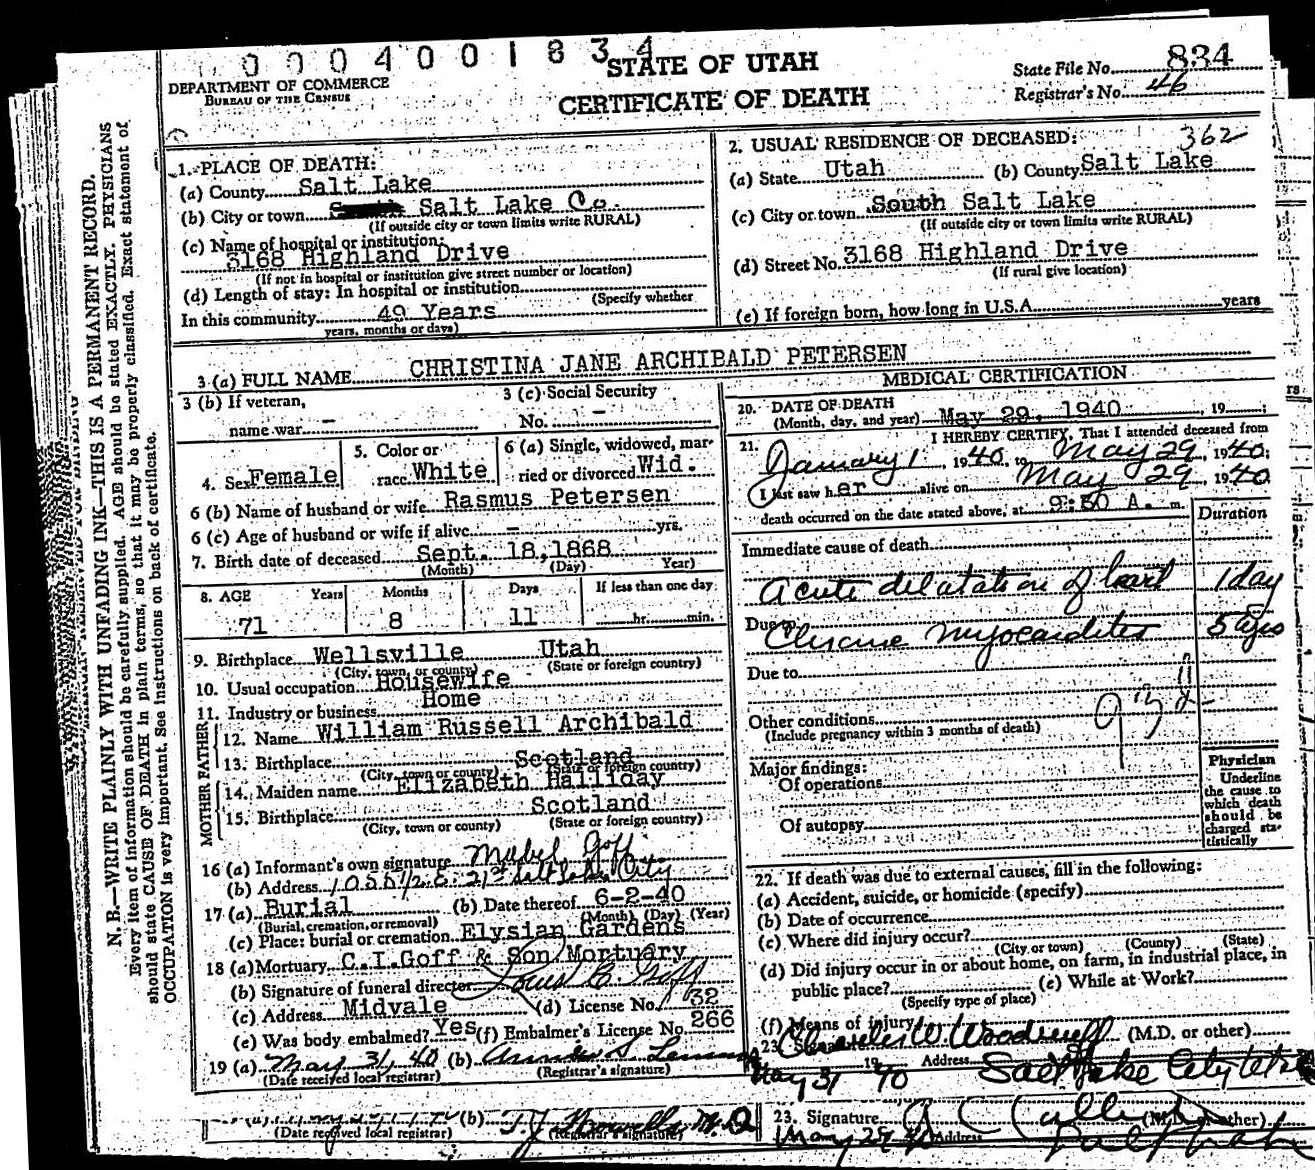 0 0 0 4 0 0 1 8 3 4
STATE OF UTAH
CERTIFICATE OF DEATH
DEPARTMENT OF COMMERCE
BUREAU OF THE CENSUS
State File No. 834
Registrar's No. 46
362
N. B.—WRITE PLAINLY WITH UNFADING INK—THIS IS A PERMANENT RECORD.
Every item of information should be carefully supplied. AGE should be stated EXACTLY. PHYSICIANS
should state CAUSE OF DEATH in plain terms, so that it may be properly classified. Exact statement of
OCCUPATION is very important. See instructions on back of certificate.
1. PLACE OF DEATH:
(a) County Salt Lake
(b) City or town Salt Lake Co.
(If outside city or town limits write RURAL)
(c) Name of hospital or institution:
3168 Highland Drive
(If not in hospital or institution give street number or location)
(d) Length of stay: In hospital or institution
(Specify whether
In this community 49 Years
years, months or days)
2. USUAL RESIDENCE OF DECEASED:
(a) State Utah (b) County Salt Lake
(c) City or town South Salt Lake
(If outside city or town limits write RURAL)
(d) Street No. 3168 Highland Drive
(If rural give location)
(e) If foreign born, how long in U.S.A. years
3 (a) FULL NAME CHRISTINA JANE ARCHIBALD PETERSEN
3 (b) If veteran, name war –
3 (c) Social Security No. –
4. Sex Female
5. Color or race White
6 (a) Single, widowed, married or divorced Wid.
6 (b) Name of husband or wife Rasmus Petersen
6 (c) Age of husband or wife if alive = yrs.
7. Birth date of deceased Sept. 18, 1868
(Month) (Day) Year)
8. AGE Years Months Days If less than one day
71 8 11 hr. min.
9. Birthplace Wellsville Utah
(City, town, or county) (State or foreign country)
10. Usual occupation Housewife
11. Industry or business Home
FATHER
12. Name William Russell Archibald
13. Birthplace Scotland
(City, town or county) (State or foreign country)
MOTHER
14. Maiden name Elizabeth Halliday
15. Birthplace Scotland
(City, town or county) (State or foreign country)
16 (a) Informant's own signature Mabel Goff
(b) Address 1055 1/2 E. 21st Salt Lake City
17 (a) Burial (b) Date thereof 6-2-40
(Burial, cremation, or removal) (Month) (Day) (Year)
(c) Place: burial or cremation Elysian Gardens
18 (a) Mortuary C.I.Goff & Son Mortuary
(b) Signature of funeral director Louis C. Goff
(c) Address Midvale (d) License No. 32
(e) Was body embalmed? Yes (f) Embalmer's License No. 266
19 (a) May 31, 40 (b)
(Date received local registrar) (Registrar's signature)
MEDICAL CERTIFICATION
20. DATE OF DEATH
(Month, day, and year) May 29, 1940, 19 ;
21. I HEREBY CERTIFY, That I attended deceased from
January 1, 1940, to May 29, 1940;
I last saw her alive on May 29, 1940
death occurred on the date stated above, at 9:50 A. m.
Duration
Immediate cause of death
Acute dilatation of heart 1 day
Due to Chronic myocarditis 5 yrs
Due to
Other conditions
(Include pregnancy within 3 months of death)
Major findings:
Of operations
Of autopsy
Physician
Underline
the cause to
which death
should be
charged sta-
tistically
22. If death was due to external causes, fill in the following:
(a) Accident, suicide, or homicide (specify)
(b) Date of occurrence
(c) Where did injury occur?
(City or town) (County) (State)
(d) Did injury occur in or about home, on farm, in industrial place, in
public place? (e) While at Work?
(Specify type of place)
(f) Means of injury
23. Signature Charles W Woodruff (M.D. or other)
May 31 1940 Address Salt Lake City Utah
(b) T J Howells M.D
(Date received local registrar) (Registrar's signature)
23. Signature (M.D. or other)
May 29 40 Address